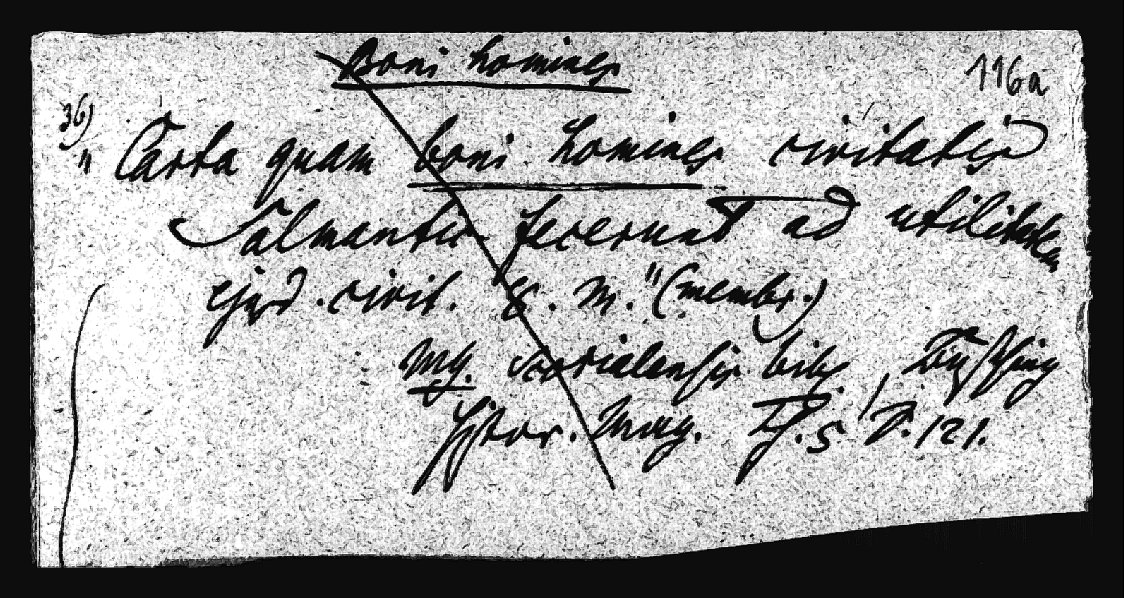 Boni homines
116a
36)
" Carta quam boni homines civitatis
Salmantic fecerunt ad utilitatem
ejusd. civit. S. M." (membr.)
Mg. scorialensis bibl, Büsching
histor. Mag. Th. 5, P. 121.